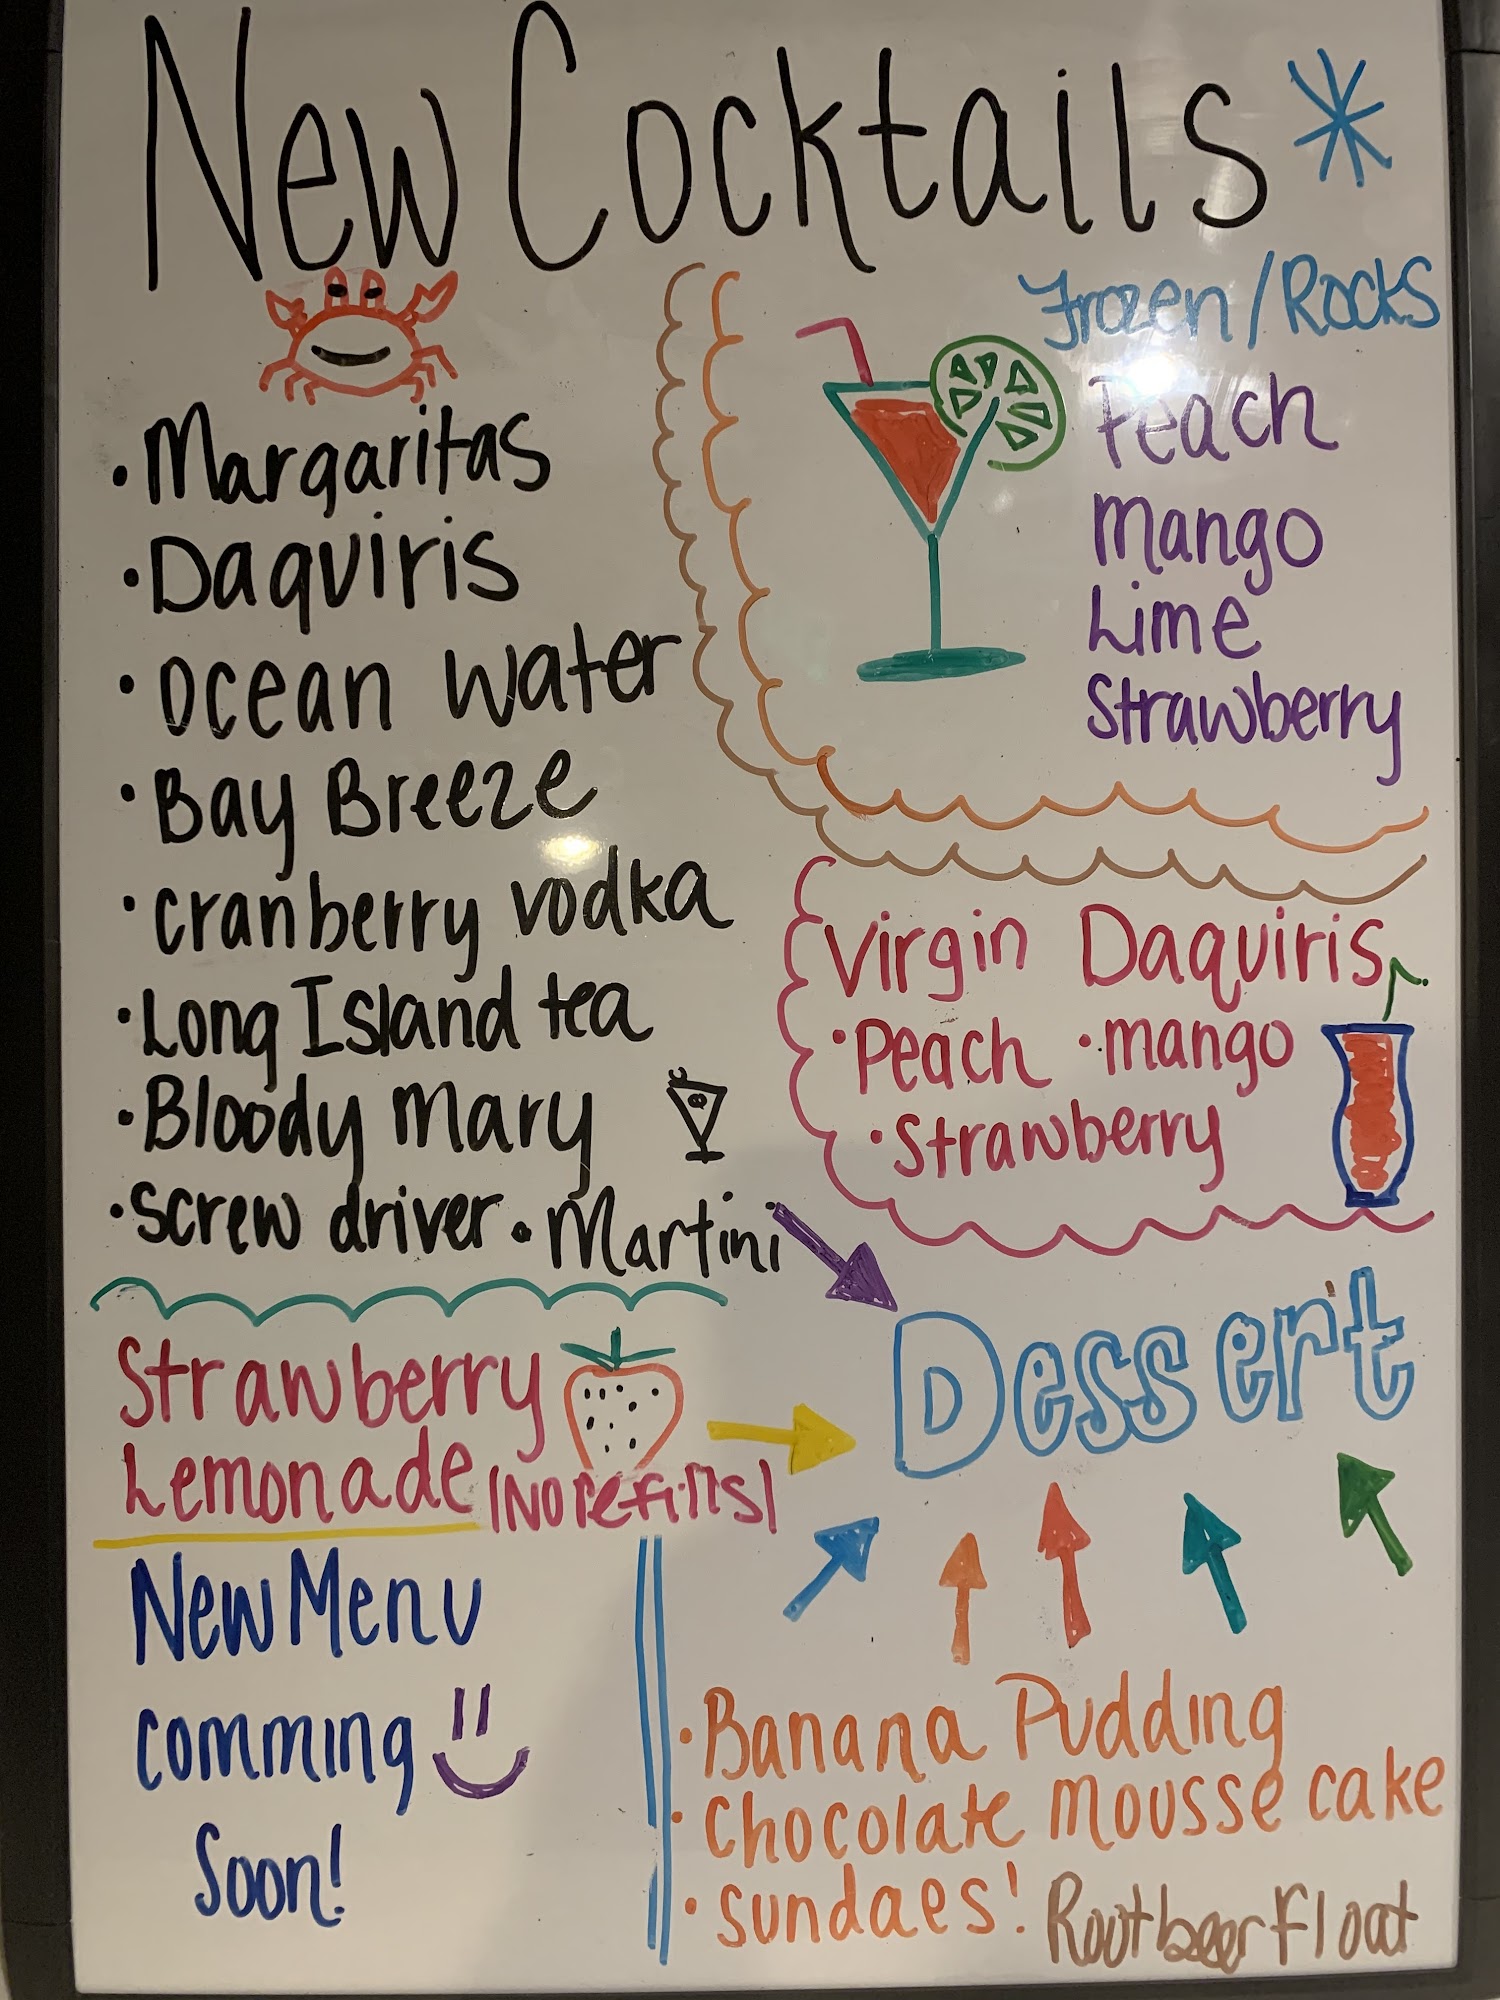 New Cocktails
• Margaritas
• Daquiris
• ocean water
• Bay Breeze
• cranberry vodka
• Long Island tea
• Bloody mary
• screw driver • Martini
Frozen/Rocks
Peach
Mango
Lime
Strawberry
Virgin Daquiris
• Peach • mango
• Strawberry
Strawberry
Lemonade (No refills)
New Menu
comming
Soon!
Dessert
• Banana Pudding
• Chocolate mousse cake
• sundaes! Rootbeer Float